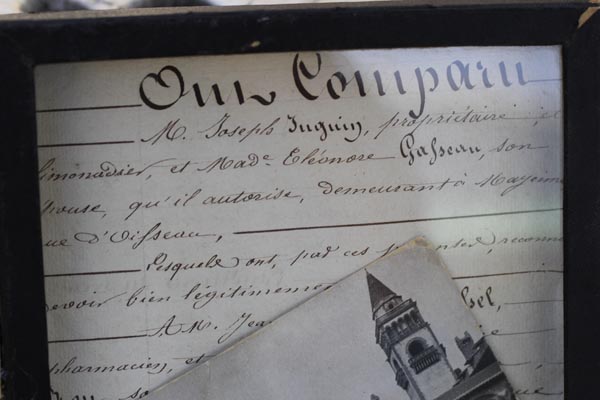 Ont Comparu
M. Joseph Juguin, propriétaire, et
limonadier, et Made Eléonore Gasseau, son
pouse, qu'il autorise, demeurant à Mayenne
ue d'Oisseau,
Lesquels ont, par ces présentes, reconnu
devoir bien légitimement
A M. Jea
pharmacien, et